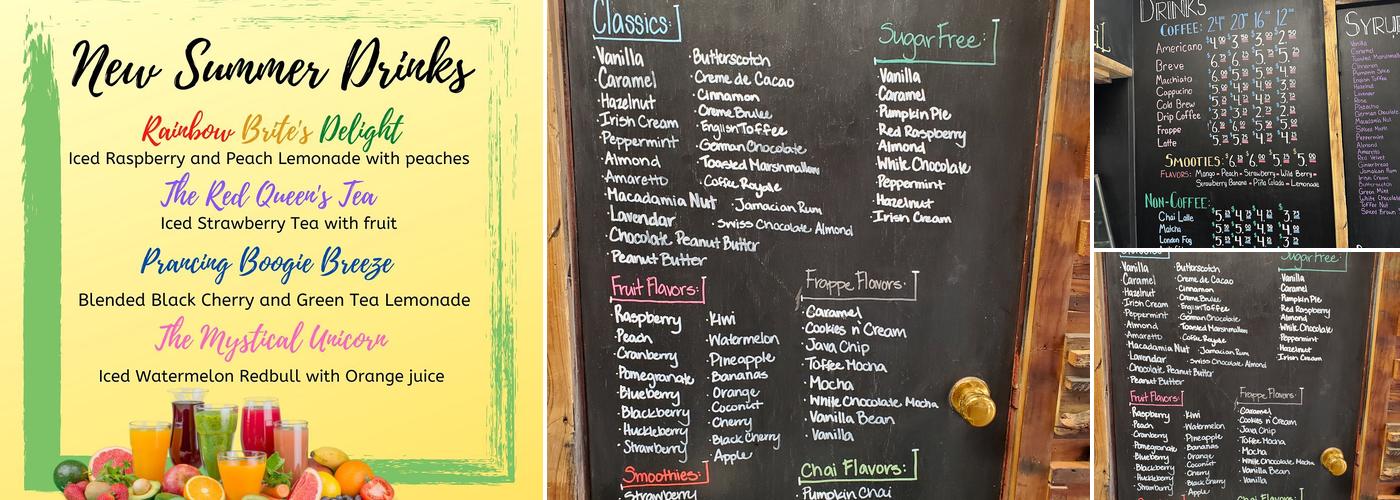 New Summer Drinks
Rainbow Brite's Delight
Iced Raspberry and Peach Lemonade with peaches
The Red Queen's Tea
Iced Strawberry Tea with fruit
Prancing Boogie Breeze
Blended Black Cherry and Green Tea Lemonade
The Mystical Unicorn
Iced Watermelon Redbull with Orange juice
Classics:
Vanilla
· Caramel
· Hazelnut
· Irish Cream
· Peppermint
· Almond
· Amaretto
· Macadamia Nut
· Lavendar
· Chocolate Peanut Butter
· Peanut Butter
· Butterscotch
· Creme de Cacao
· Cinnamon
· Creme Brulee
· English Toffee
· German Chocolate
· Toasted Marshmallow
· Coffee Royale
· Jamacian Rum
· Swiss Chocolate Almond
Sugar Free:
Vanilla
Caramel
Pumpkin Pie
Red Raspberry
Almond
White Chocolate
Peppermint
Hazelnut
· Irish Cream
Fruit Flavors:
Raspberry
· Peach
· Cranberry
· Pomegranate
· Blueberry
· Blackberry
· Huckleberry
· Strawberry
· Kiwi
· Watermelon
· Pineapple
· Bananas
· Orange
· Coconut
· Cherry
· Black Cherry
· Apple
Frappe Flavors:
· Caramel
· Cookies n' Cream
· Java Chip
· Toffee Mocha
· Mocha
· White Chocolate Mocha
· Vanilla Bean
· Vanilla
Smoothies:
· Strawberry
Chai Flavors:
· Pumpkin Chai
DRINKS
COFFEE: 24" 20" 16" 12"
Americano
Breve
Macchiato
Cappucino
Cold Brew
Drip Coffee
Frappe
Latte
SMOOTIES:
FLAVORS: Mango · Peach · Strawberry · Wild Berry ·
Strawberry Banana · Piña Colada · Lemonade
NON-COFFEE:
Chai Latte
Matcha
London Fog
Vanilla
Caramel
Toasted Marshmallow
Cinnamon
Pumpkin Spice
English Toffee
Hazelnut
Lavender
Rose
Pistachio
Macadamia Nut
Peppermint
Almond
Amaretto
Red Velvet
Gingerbread
Jamaican Rum
Irish Cream
Butterscotch
Green Mint
White Chocolate
Toffee Nut
Vanilla
· Caramel
· Hazelnut
· Irish Cream
· Peppermint
· Almond
· Amaretto
· Macadamia Nut
· Lavendar
· Chocolate Peanut Butter
· Peanut Butter
· Butterscotch
· Creme de Cacao
· Cinnamon
· Creme Brulee
· English Toffee
· German Chocolate
· Toasted Marshmallow
· Coffee Royale
· Jamacian Rum
· Swiss Chocolate Almond
Sugar Free:
Vanilla
Caramel
Pumpkin Pie
Red Raspberry
Almond
White Chocolate
Peppermint
Hazelnut
· Irish Cream
Fruit Flavors:
Raspberry
· Peach
· Cranberry
· Pomegranate
· Blueberry
· Blackberry
· Huckleberry
· Strawberry
· Kiwi
· Watermelon
· Pineapple
· Bananas
· Orange
· Coconut
· Cherry
· Black Cherry
· Apple
Frappe Flavors:
· Caramel
· Cookies n' Cream
· Java Chip
· Toffee Mocha
· Mocha
· White Chocolate Mocha
· Vanilla Bean
· Vanilla